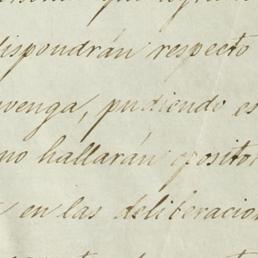 dispondrán respecto
venga, pudiendo es
no hallarán opositor
en las deliberacion